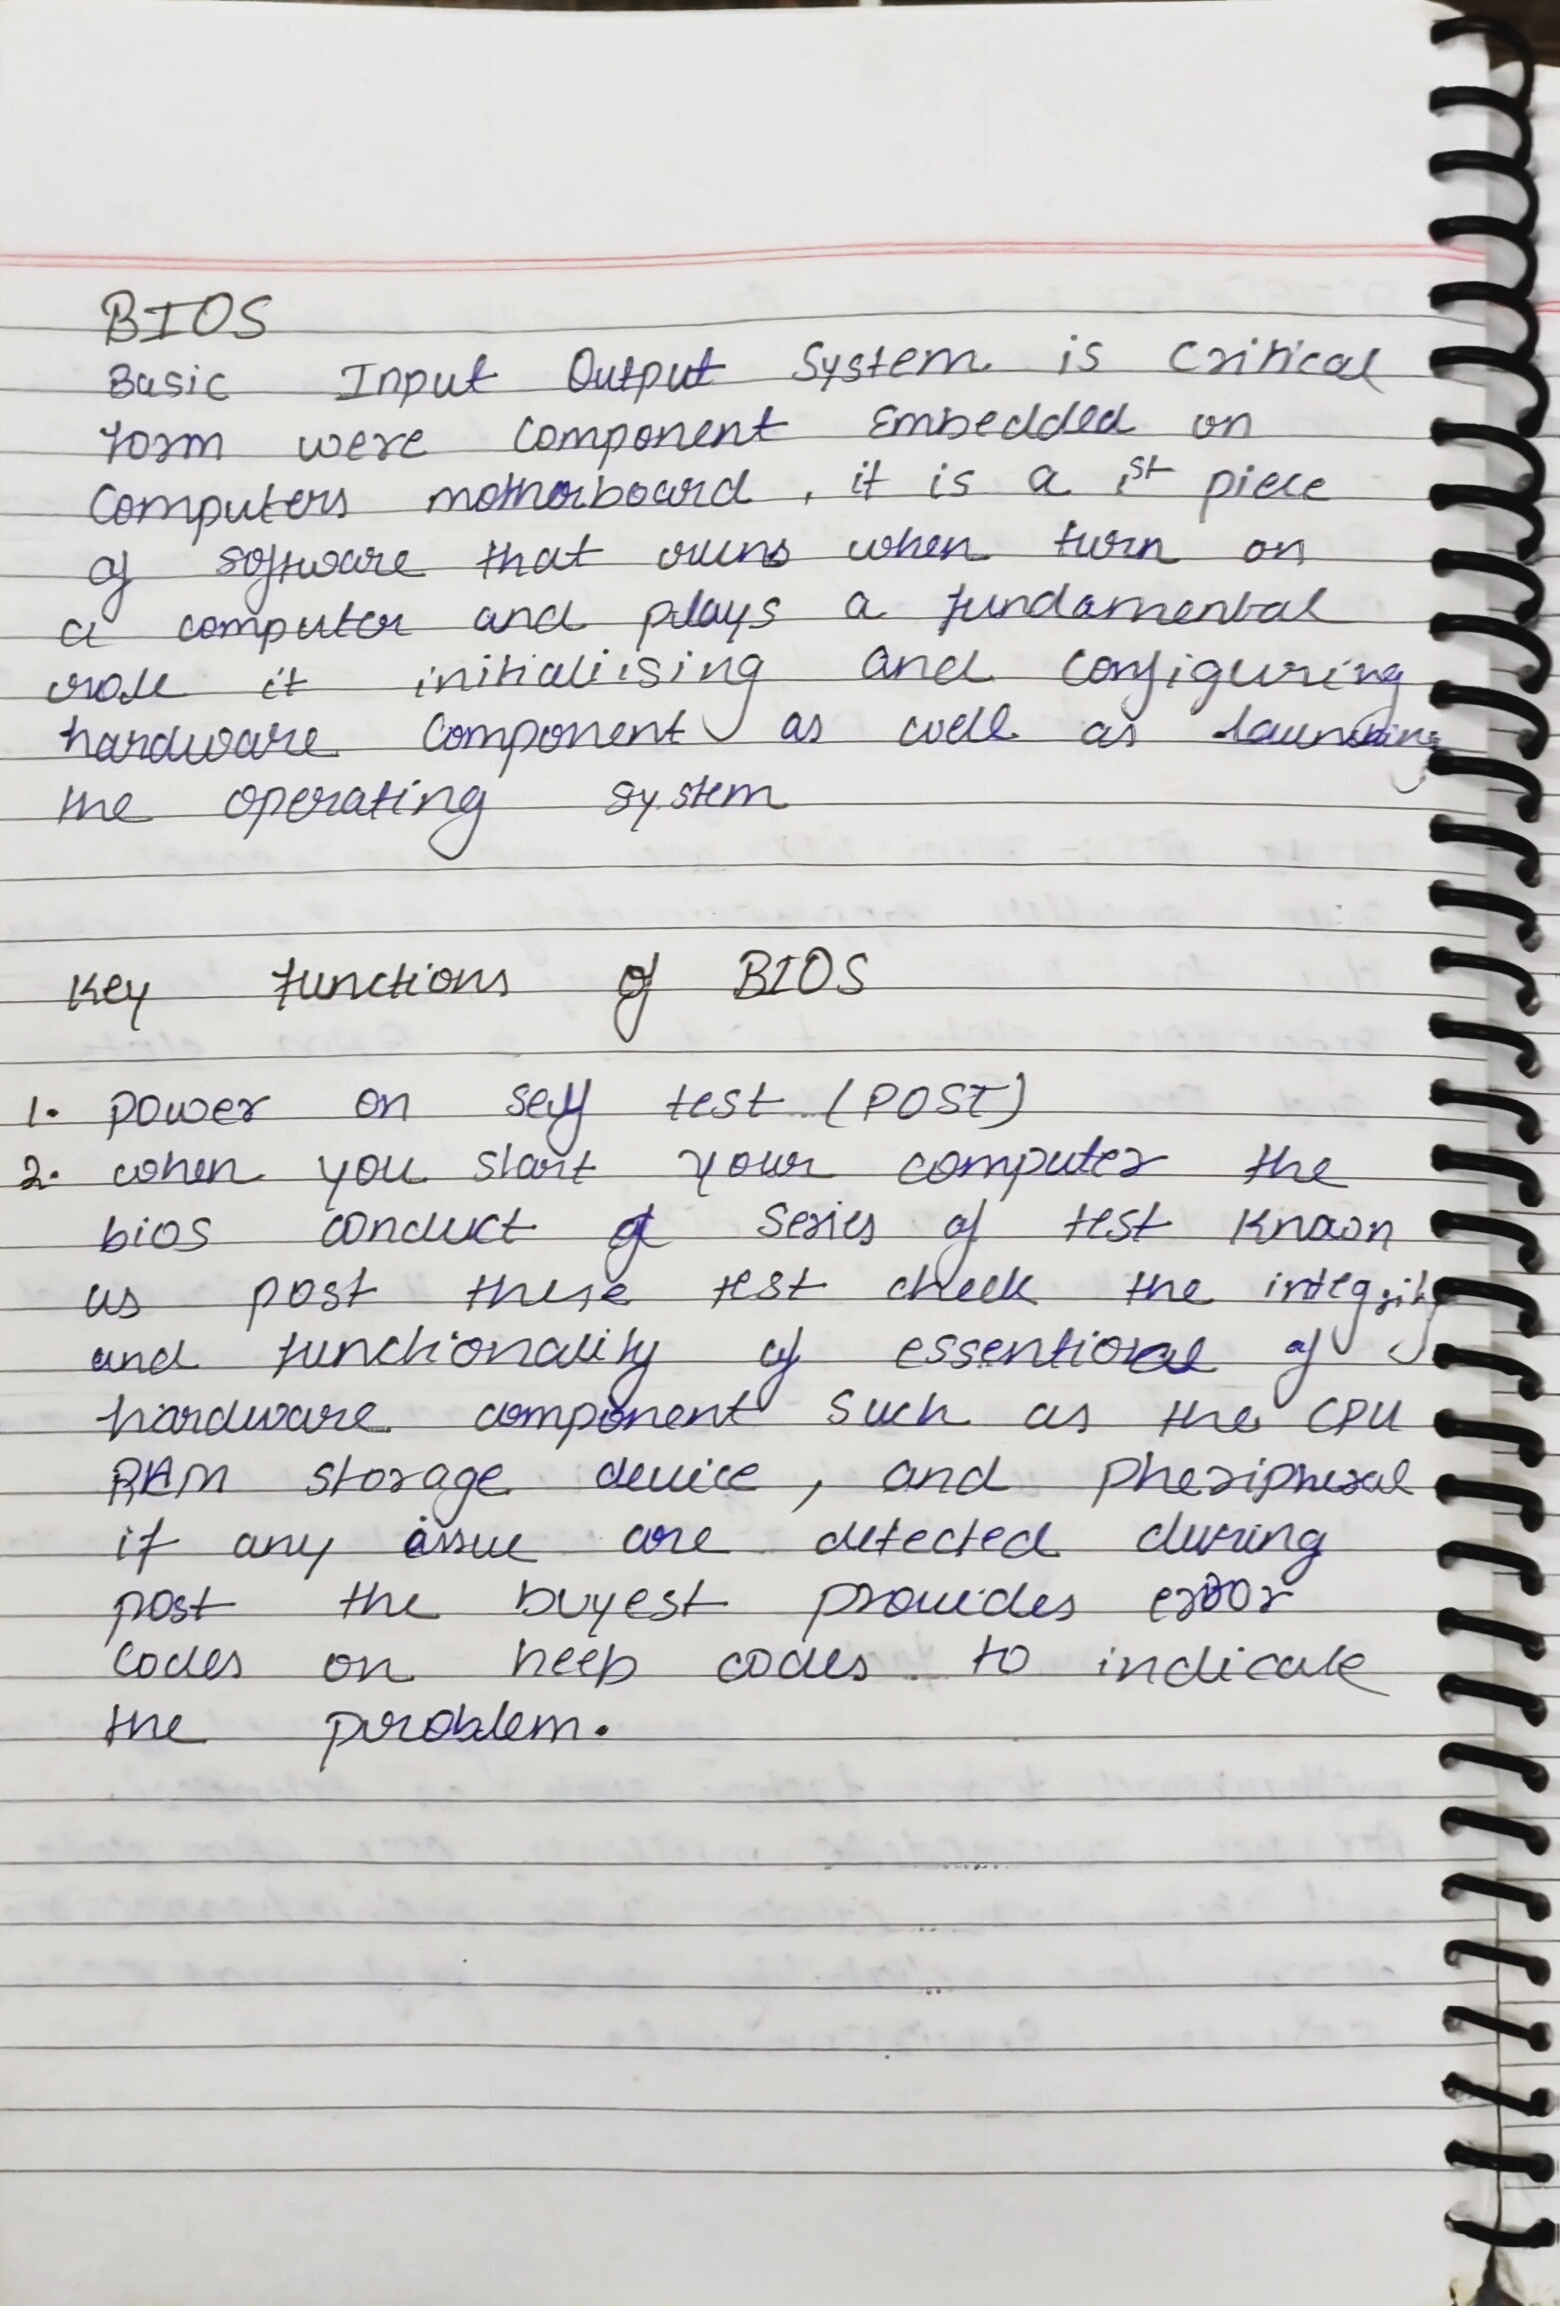 BIOS
Basic Input Output System is Critical
form were Component Embedded on
Computers motherboard, it is a 1st piece
of software that runs when turn on
a computer and plays a fundamental
role it initialising and Configuring
hardware Component as well as launching
the operating system
Key functions of BIOS
1. power on self test (POST)
2. when you start your computer the
bios conduct of series of test known
as post these test check the integrity
and functionality of essential of
hardware component such as the CPU
RAM storage device, and pheripheral
if any issue are detected during
post the buyest provides error
codes on heep codes to indicate
the problem.